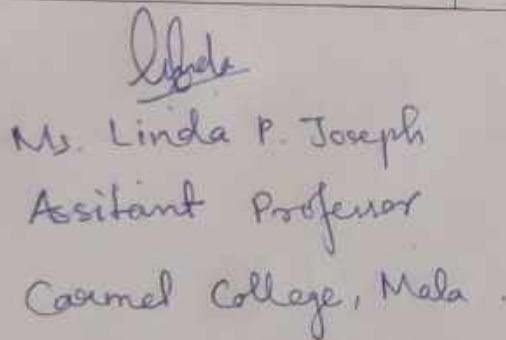 Linda
Ms. Linda P. Joseph
Assitant Professor
Carmel College, Mala.